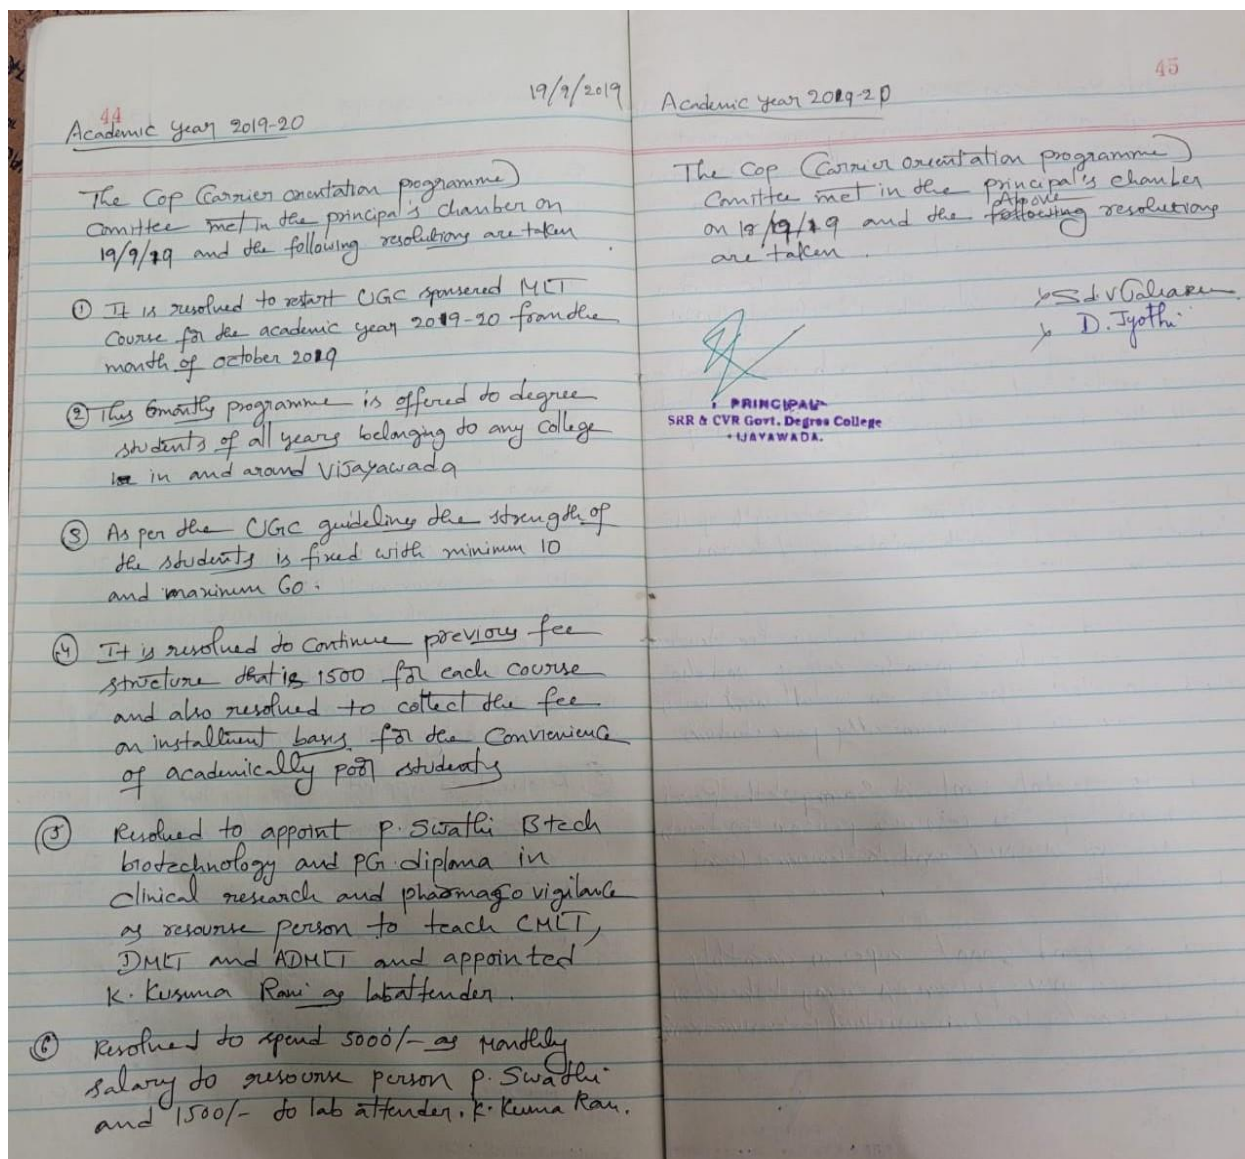 44
19/9/2019
Academic year 2019-20
The Cop (Carrier orientation programme)
Comittee met in the principal's chamber on
19/9/19 and the following resolutions are taken
① It is resolved to restart UGC sponsered MLT
Course for the academic year 2019-20 from the
month of october 2019
② This 6monthly programme is offered to degree
students of all years belonging to any College
in and around Vijayawada
③ As per the UGC guidelines the strength of
the students is fixed with minimum 10
and maximum 60.
④ It is resolved to continue previous fee
structure that is 1500 for each course
and also resolved to collect the fee
on installment basis for the Convienience
of academically poor students
⑤ Resolved to appoint P. Swathi Btech
biotechnology and PG diploma in
clinical research and pharmago vigilance
as resourse person to teach CMLT,
DMLT and ADMLT and appointed
K. Kusuma Rani as lab attender.
⑥ Resolved to spend 5000/- as Monthly
salary to resourse person P. Swathi
and 1500/- to lab attender. K. Kuma Rani.
45
Academic year 2019-20
The Cop (Carrier orientation programme)
Comittee met in the principal's chamber
Above
on 19/9/19 and the following resolutions
are taken.
D. Jyothi
PRINCIPAL
SRR & CVR Govt. Degree College
VIJAYAWADA.